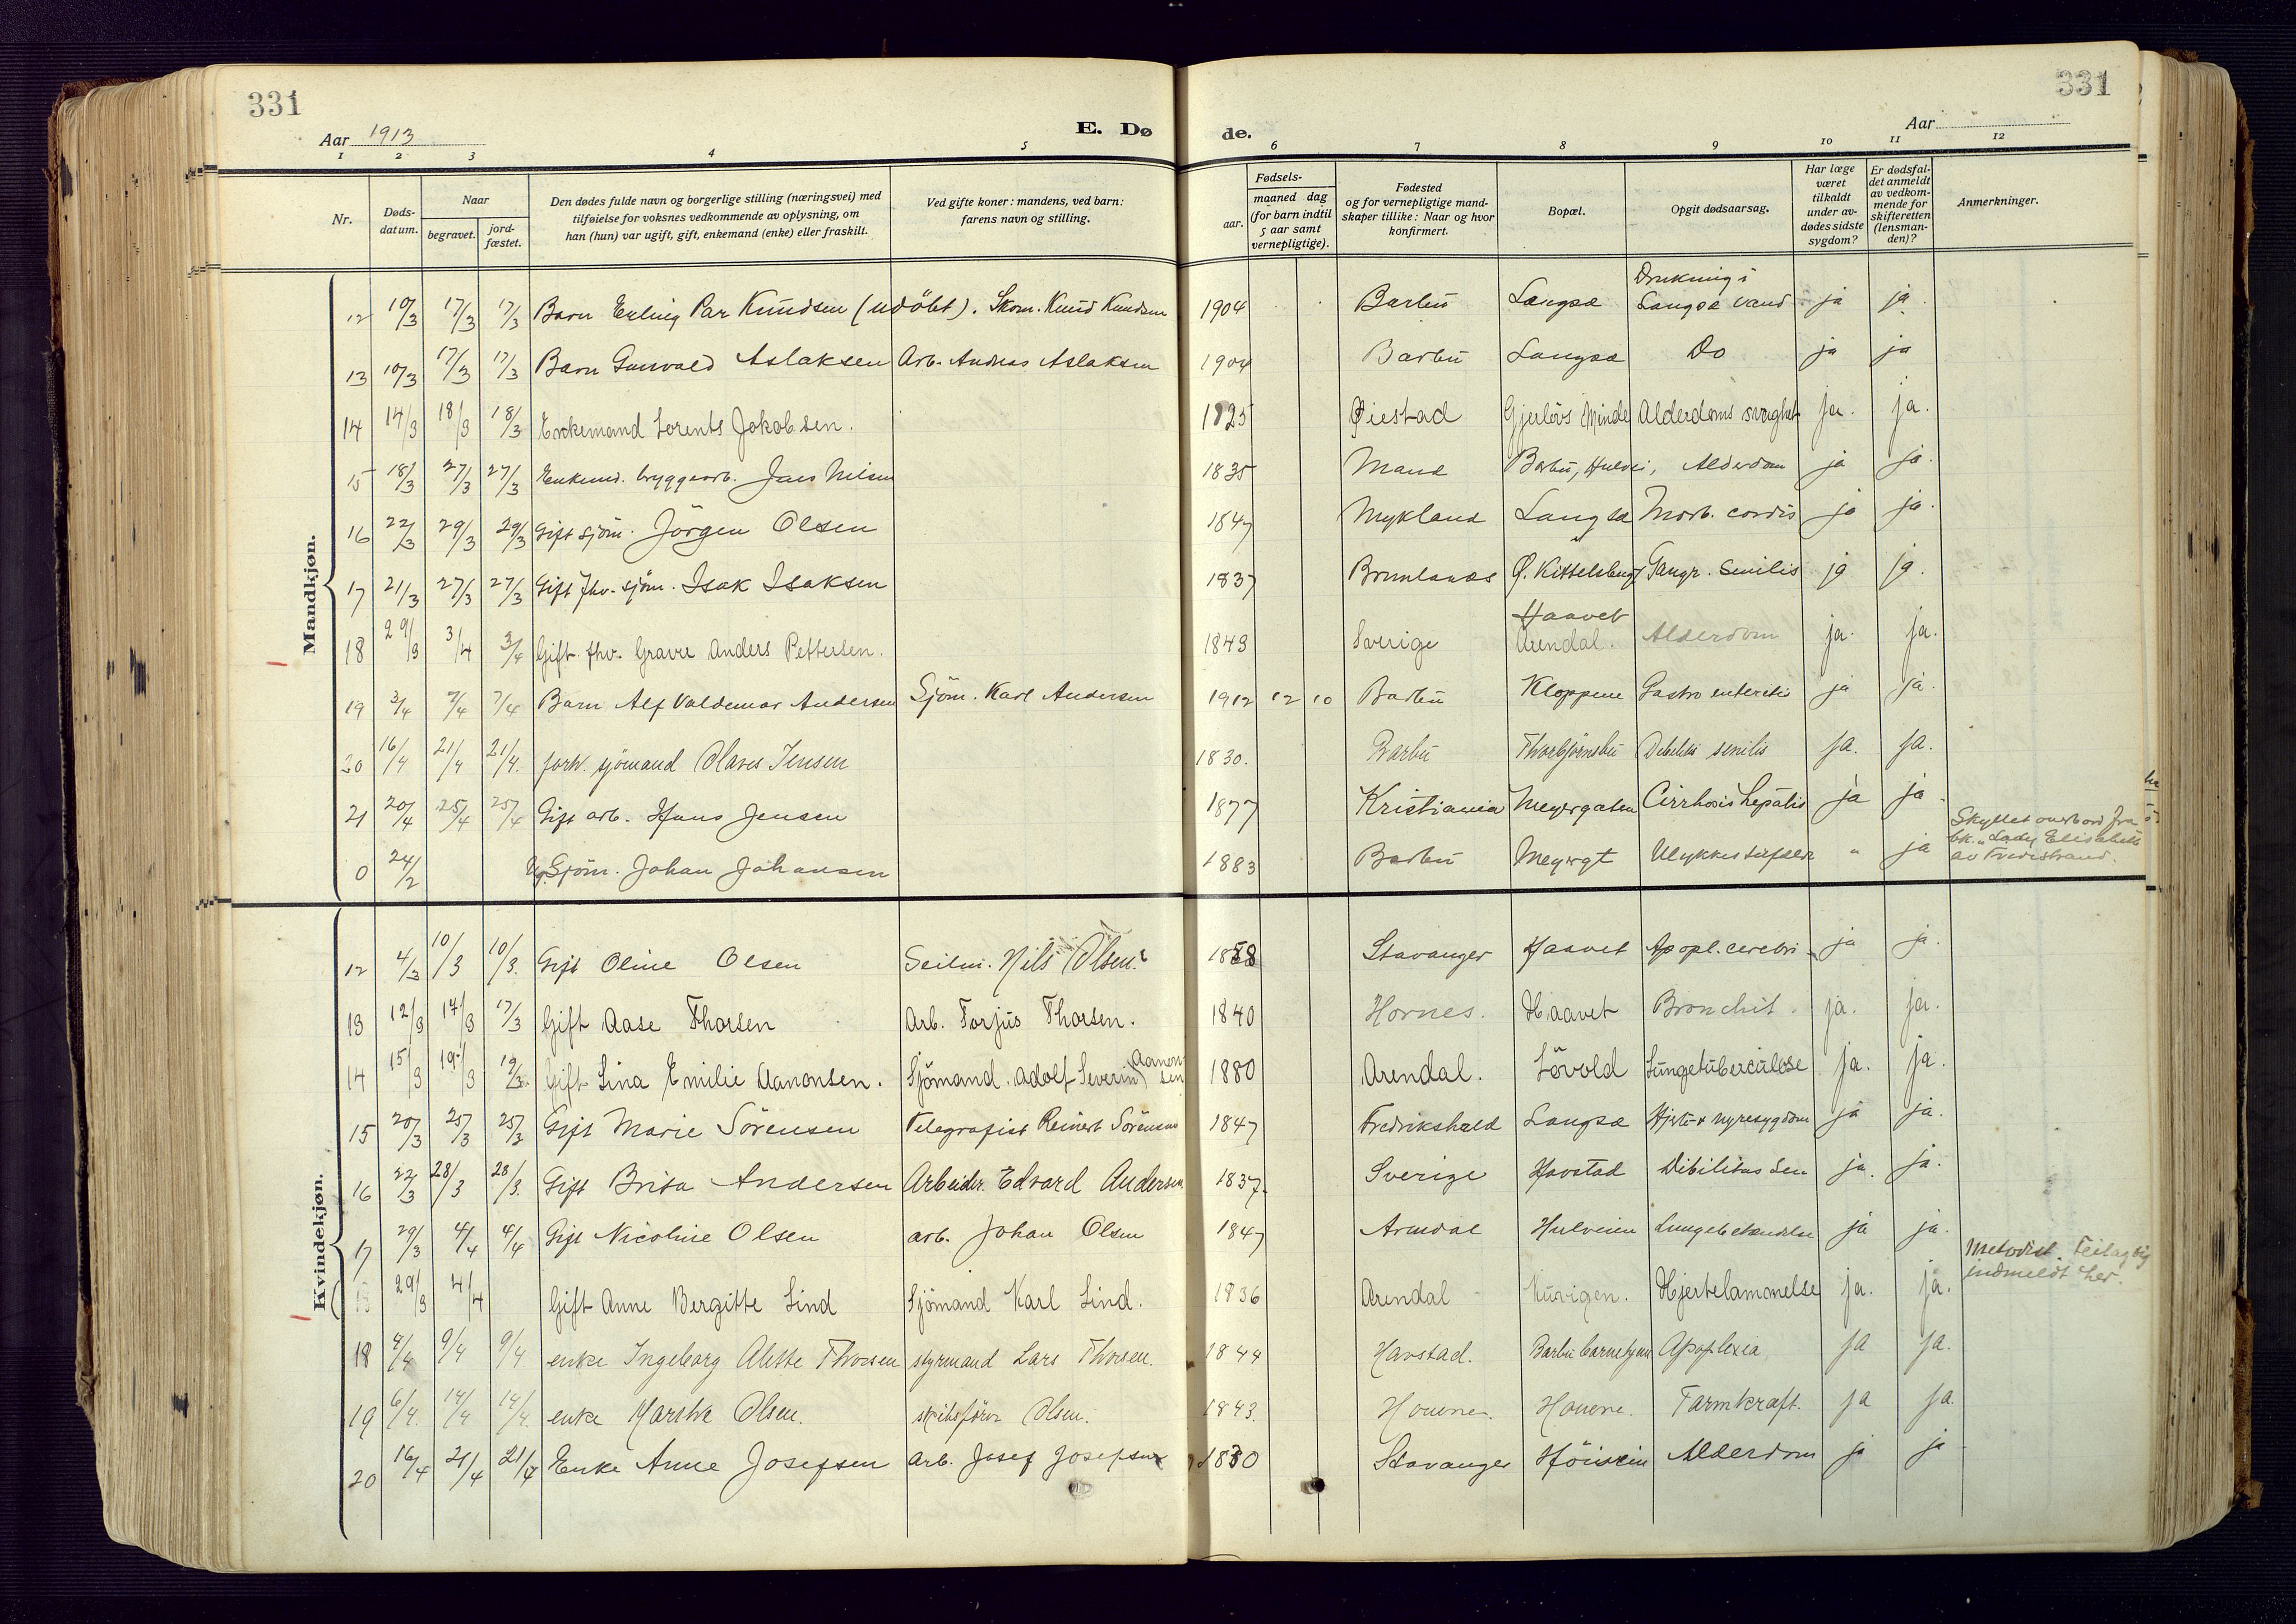 331
331
Aar 1913
E. Dø
de.
Aar
1 2 3 4 5 6 7 8 9 10 11 12
Nr.
Døds-
datum.
Naar
begravet.
jord-
fæstet.
Den dødes fulde navn og borgerlige stilling (næringsvei) med
tilføielse for voksnes vedkommende av oplysning, om
han (hun) var ugift, gift, enkemand (enke) eller fraskilt.
Ved gifte koner: mandens, ved barn:
farens navn og stilling.
Fødsels-
aar.
maaned dag
(for barn indtil
5 aar samt
vernepligtige).
Fødested
og for vernepligtige mand-
skaper tillike: Naar og hvor
konfirmert.
Bopæl.
Opgit dødsaarsag.
Har læge
været
tilkaldt
under av-
dødes sidste
sygdom?
Er dødsfal-
det anmeldt
av vedkom-
mende for
skifteretten
(lensman-
den)?
Anmerkninger.
Mandkjøn.
12 10/3 17/3 17/3 Barn Erling Par Knudsen (udöbt). Skom. Knud Knudsen 1904 Barbu Langsæ Drukning i
Langsæ vand ja ja.
13 10/3 17/3 17/3 Barn Gunvald Aslaksen Arb. Andreas Aslaksen 1904 Barbu Langsæ Do ja ja
14 14/3 18/3 18/3 Enkemand Lorents Jakobsen. 1825 Øiestad Gjerlövs Minde Alderdoms svaghet ja. ja.
15 18/3 27/3 27/3 Enkemd. bryggearb. Jens Nilsen 1835 Barbu, Hulvei, Alderdom ja ja.
16 22/3 29/3 29/3 Gift sjöm. Jörgen Olsen 1847 Mykland Langsæ Morb. cordis ja ja.
17 21/3 27/3 27/3 Gift fhv. sjöm. Isak Isaksen 1837 Brunlanæs Ø. Kittelsbugt Gangr. Senilis ja ja.
18 29/3 3/4 3/4 Gift fhv. Graver Anders Pettersen. 1843 Sverige Haavet
Arendal. Alderdom ja. ja.
19 3/4 7/4 7/4 Barn Alf Valdemar Andersen Sjöm. Karl Andersen 1912 12 10 Barbu Kloppene Gastro enteritis ja ja.
20 16/4 21/4 21/4. forh. sjömand Olaves Jensen 1830. Barbu Thorbjörnsbu Debilitas senilis ja. ja.
21 20/4 25/4 25/4 Gift arb. Hans Jensen 1877 Kristiania Meyergaten Cirrhosis hepatis ja ja.
0 24/2 Ug. Sjöm. Johan Johansen 1883 Barbu Meyergt Ulykkestilfælde " ja Skyllet overbord fra
bk. "Lady Elisabeth
av Fredrikstad.
Kvindekjøn.
12 4/3 10/3 10/3. Gift Oline Olsen Seilm. Nils Olsen. 1858 Stavanger Haavet Apopl. cerebri ja ja.
13 12/3 17/3 17/3 Gift Aase Thorsen Arb. Torjus Thorsen. 1840 Hornes. Haavet Bronchit. ja. ja.
14 15/3 19/3 19/3. Gift Lina Emilie Aanonsen. Sjömand. Adolf Severin Aanon
sen 1880 Arendal. Lövold Lungetuberculose ja. ja.
15 20/3 25/3 25/3 Gift Marie Sörensen Telegrafist Reinert Sörensen 1847 Fredrikshald Langsæ Hjerte & nyresygdom ja ja.
16 22/3 28/3 28/3. Gift Brita Andersen Arbeider. Edvard Andersen. 1837. Sverige Havstad Dibilitas Sen ja. ja.
17 29/3 4/4 4/4 Gift Nicoline Olsen arb. Johan Olsen 1847 Arendal Hulveien Lungebetændelse ja ja.
29/3 4/4 Gift Anne Bergitte Lind Sjömand Karl Lind. 1836 Arendal Kuvigen. Hjertelammelse ja. ja. Metodist. Feilagtig
indmeldt her.
18 4/4 9/4 9/4 enke Ingeborg Alette Thorsen styrmand Lars Thorsen. 1844 Havstad. Apoplexia ja ja.
19 6/4. 14/4 14/4. enke Marthe Olsen. skibsförer Olsen. 1843. Houene. Houene. Tarmkræft. ja ja.
20 16/4 21/4 21/4 Enke Anne Josefsen arb. Josef Josefsen 1830 Stavanger Höiveien Alderdom ja ja